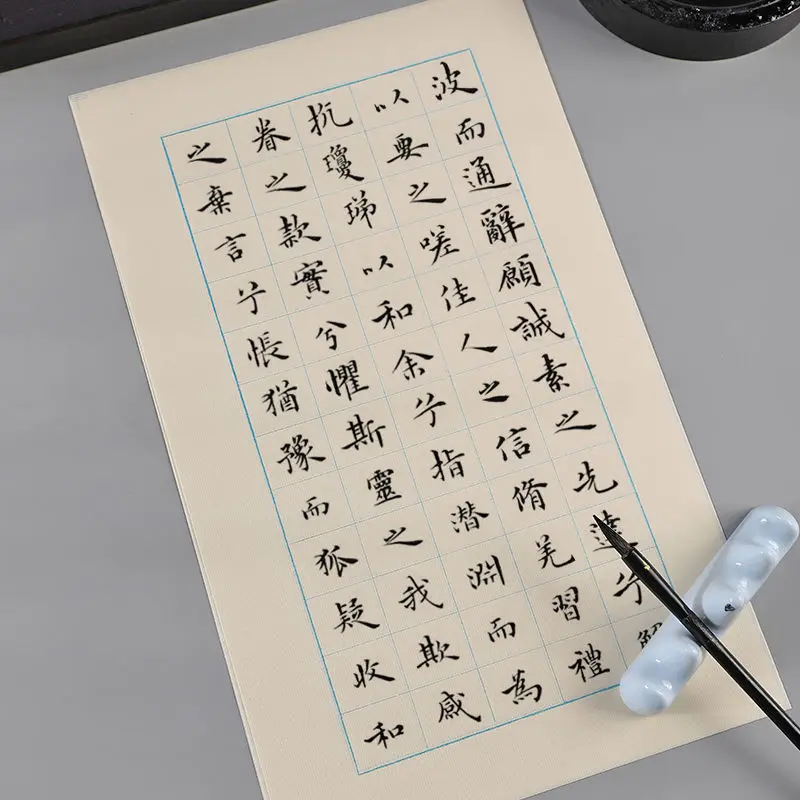 波而通辭願誠素之先達兮解
以要之嗟佳人之信脩羌習禮
抗瓊珶以和余兮指潜淵而為
眷之款實兮懼斯靈之我欺感
之棄言兮悵猶豫而狐疑收和